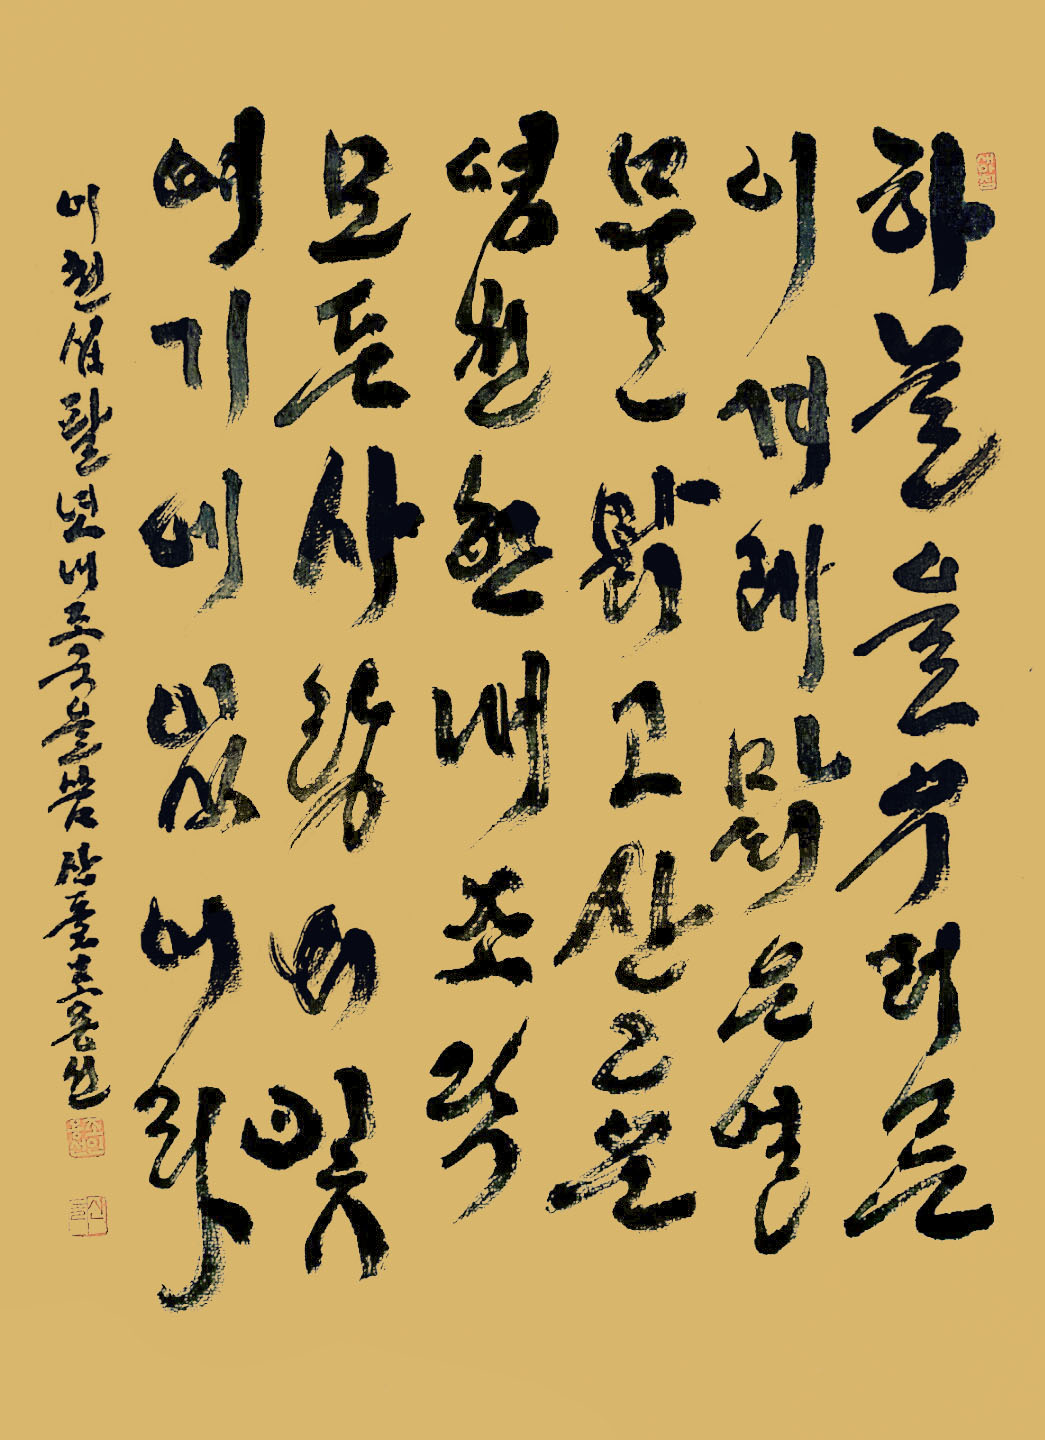 하늘 늘 푸르름
이 겨레 맑은 얼
물 맑고 산 고운
영원한 내 조국
모든 사랑 빛
여기에 있어라
이천십팔년 내 조국을 씀 산돌 조용선